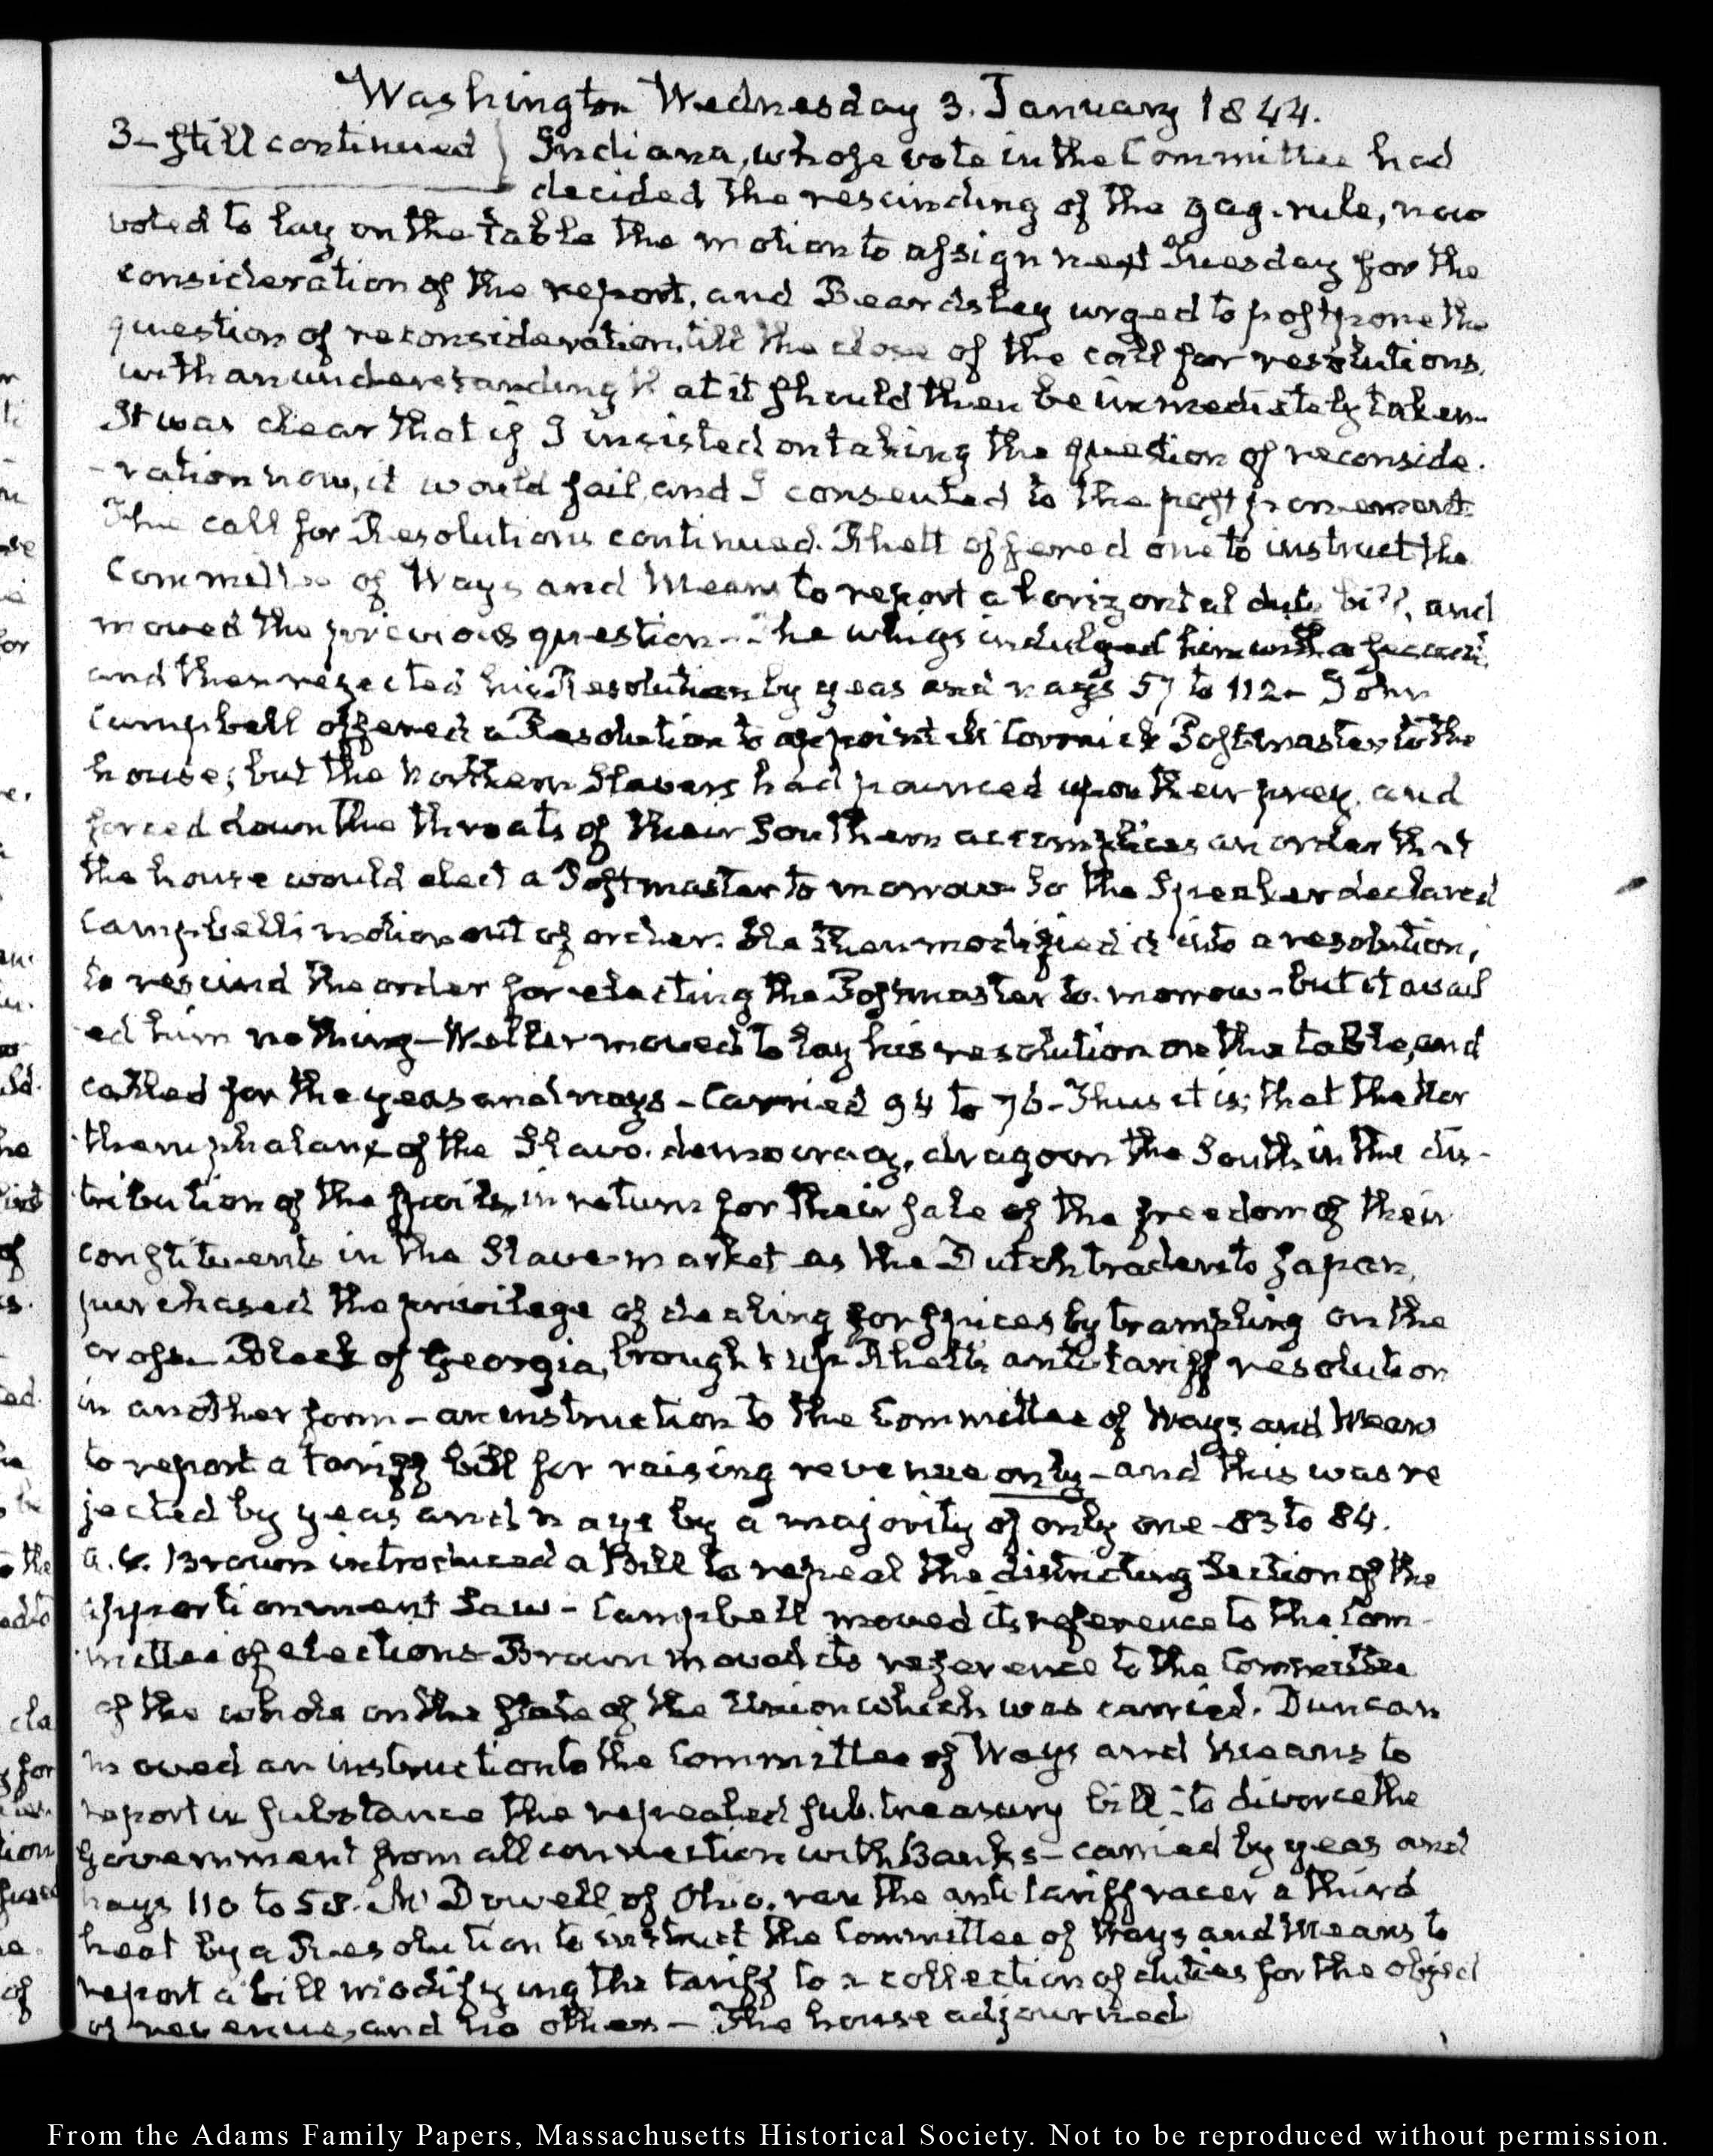 Washington Wednesday 3. January 1844.
3– Still continued } Indiana, whose vote in the Committee had
decided the rescinding of the gag-rule, now
voted to lay on the table the motion to assign next Tuesday for the
consideration of the report, and Beardsley urged to postpone the
question of reconsideration, till the close of the call for resolutions,
with an understanding that it should then be immediately taken.
It was clear that if I insisted on taking the question of reconside-
-ration now, it would fail, and I consented to the postponement.
The call for Resolutions continued. Rhett offered one to instruct the
Committee of Ways and Means to report a horizontal duty bill, and
moved the previous question – The whigs indulged him with a second,
and then rejected his Resolution by yeas and nays 57 to 112 – John
Campbell offered a Resolution to appoint McCormick Postmaster to the
house; but the Northern Slavers had pounced upon their prey, and
forced down the throats of their Southern accomplices an order that
the house would elect a Postmaster to morrow. So the Speaker declared
Campbell's motion out of order. He then modified it into a resolution,
to rescind the order for electing the Postmaster to-morrow – but it avail
ed him nothing – Weller moved to lay his resolution on the table, and
called for the yeas and nays – Carried 94 to 76 – Thus it is; that the Nor
thern phalanx of the Slavo-democracy, dragoon the South in the dis-
tribution of the spoils, in return for their sale of the freedom of their
constituents in the Slave-market as the Dutch traders to Japan,
purchased the privilege of dealing for spices by trampling on the
cross – Black of Georgia, brought up Rhett's anti tariff resolution
in another form – an instruction to the Committee of Ways and Means
to report a tariff bill for raising revenue only – and this was re
jected by yeas and nays by a majority of only one – 83 to 84.
A. V. Brown introduced a Bill to repeal the districting Section of the
apportionment Law – Campbell moved its reference to the Com-
mittee of elections – Brown moved its reference to the Committee
of the whole on the state of the Union which was carried. Duncan
moved an instruction to the Committee of Ways and Means to
report in substance the repealed sub-treasury bill – to divorce the
Government from all connection with Banks – carried by yeas and
nays 110 to 58. McDowell of Ohio, ran the anti tariff racer a third
heat by a Resolution to instruct the Committee of Ways and Means to
report a bill modifying the tariff to a collection of duties for the object
of revenue, and no other – The house adjourned
From the Adams Family Papers, Massachusetts Historical Society. Not to be reproduced without permission.